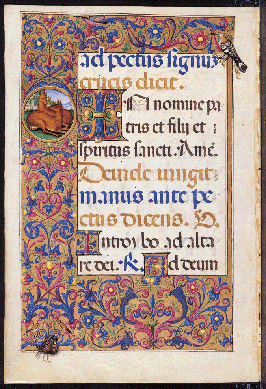 ad pectus signū
crucis dicit.
In nomine pa
tris et filij et
spiritus sancti. Amē.
Deinde iungit
manus ante pe
ctus dicens. V.
Introibo ad alta
re dei. R. Ad deum